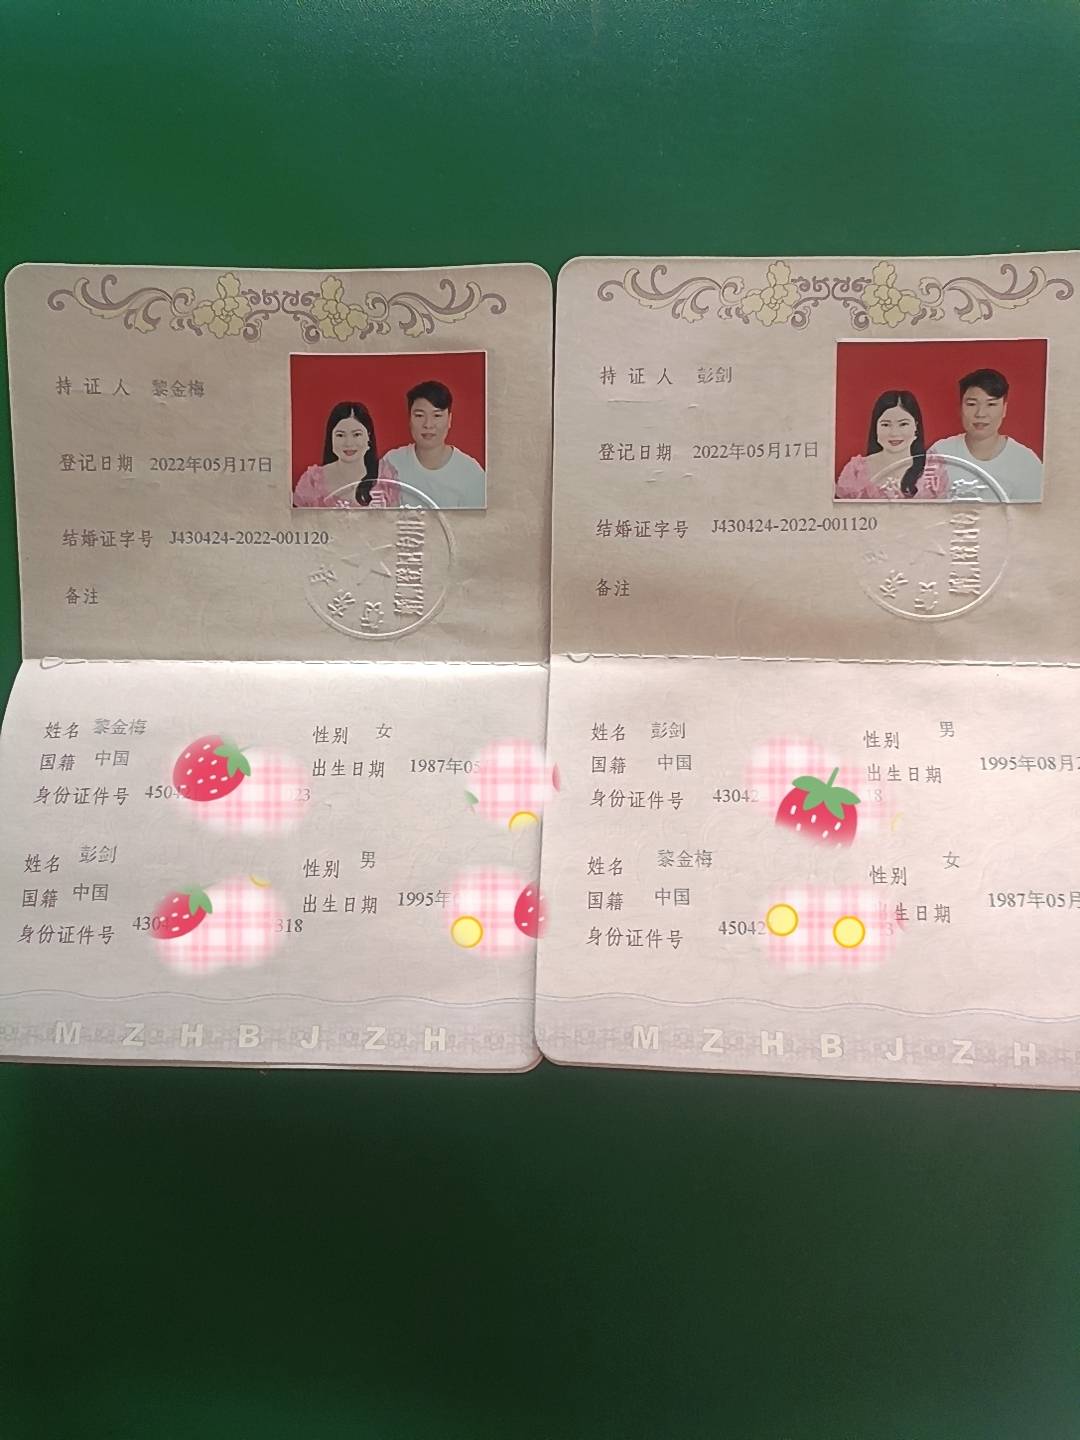 持证人 黎金梅
登记日期 2022年05月17日
结婚证字号 J430424-2022-001120
备注
姓名 黎金梅 性别 女
国籍 中国 出生日期 1987年05
身份证件号 4504 23
姓名 彭剑 性别 男
国籍 中国 出生日期 1995年
身份证件号 430 318
MZHBJZH
持证人 彭剑
登记日期 2022年05月17日
结婚证字号 J430424-2022-001120
备注
姓名 彭剑 性别 男
国籍 中国 出生日期 1995年08月2
身份证件号 43042 18
姓名 黎金梅 性别 女
国籍 中国 生日期 1987年05月
身份证件号 45042 3
MZHBJZH